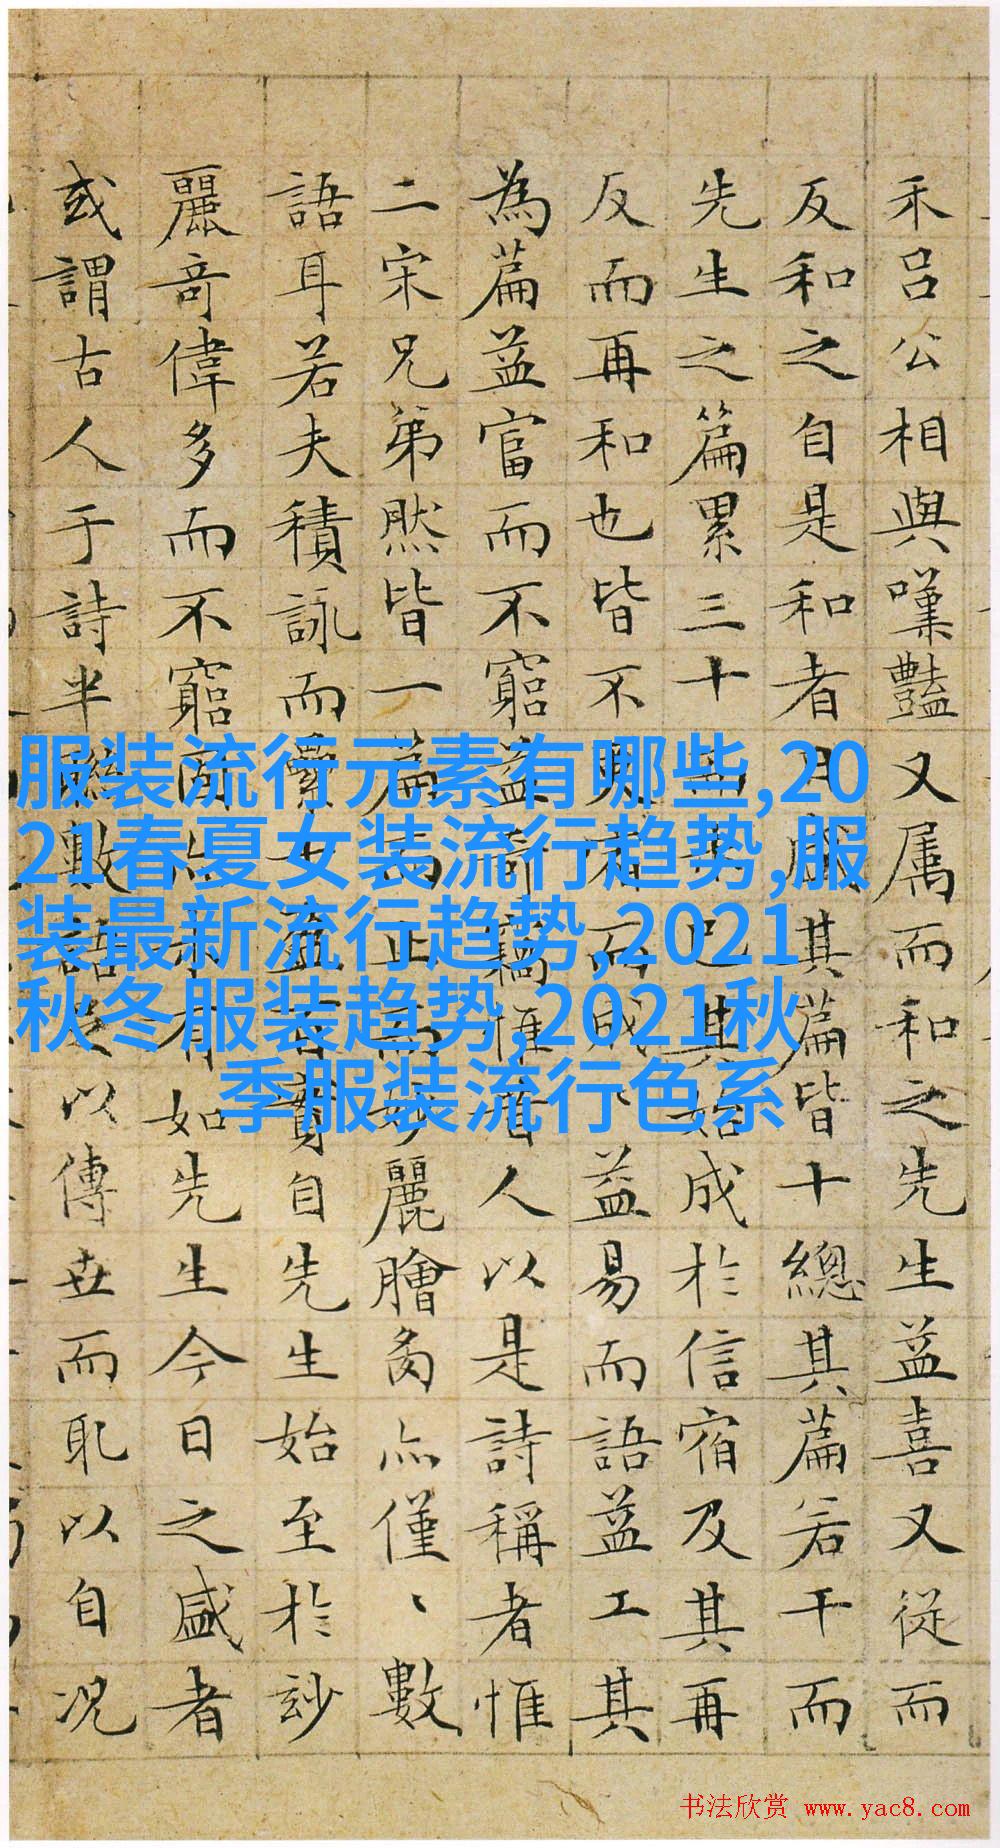 禾吕公相與嘆豔又属而和之先生益喜又從而
反和之自是和者日盛其篇皆十總其篇若干而
先生之篇累三十而其始成於信宿及其再
反而再和也皆不而成益易而語益工其
為篇益富而不窮益奇人以是詩稱者惟
二宋兄弟然皆一篇而麗膾勻亦僅、數
語耳若夫積詠而自先生始至於玅
麗奇偉多而不窮有如先生今日之盛者
或謂古人于詩半聯數語以傳世而耴以自况
服装流行元素有哪些,20
21春夏女装流行趋势,服
装最新流行趋势,2021
秋冬服装趋势,2021秋
季服装流行色系
书法欣赏 www.yac8.com